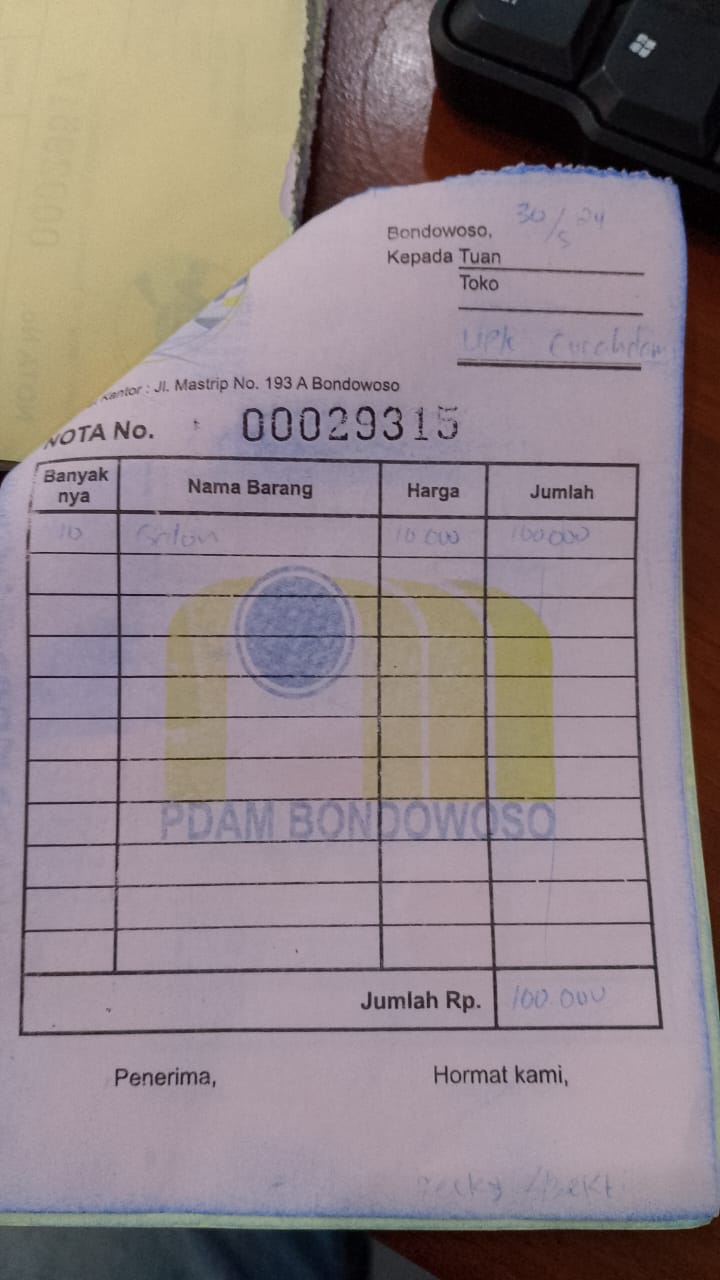 Bondowoso, 30/5 24
Kepada Tuan
Toko
UPK Curahdami
Kantor : Jl. Mastrip No. 193 A Bondowoso
NOTA No. 00029315
Banyak nya Nama Barang Harga Jumlah
10 Galon 10.000 100.000
PDAM BONDOWOSO
Jumlah Rp. 100.000
Penerima, Hormat kami,